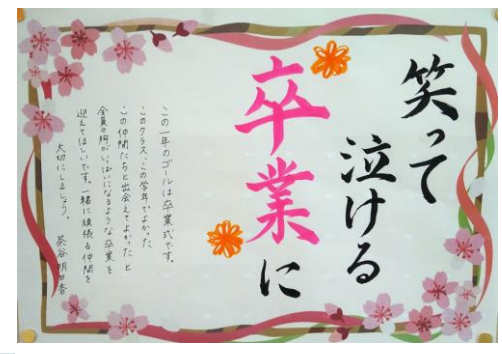 笑って
泣ける
卒業に
この一年のゴールは卒業式です。
このクラス、この学年でよかった
この仲間たちと出会えてよかった と
全員の胸がいっぱいになるような卒業を
迎えてほしいです。一緒に頑張る仲間を
大切にしましょう。 茶谷 明日香